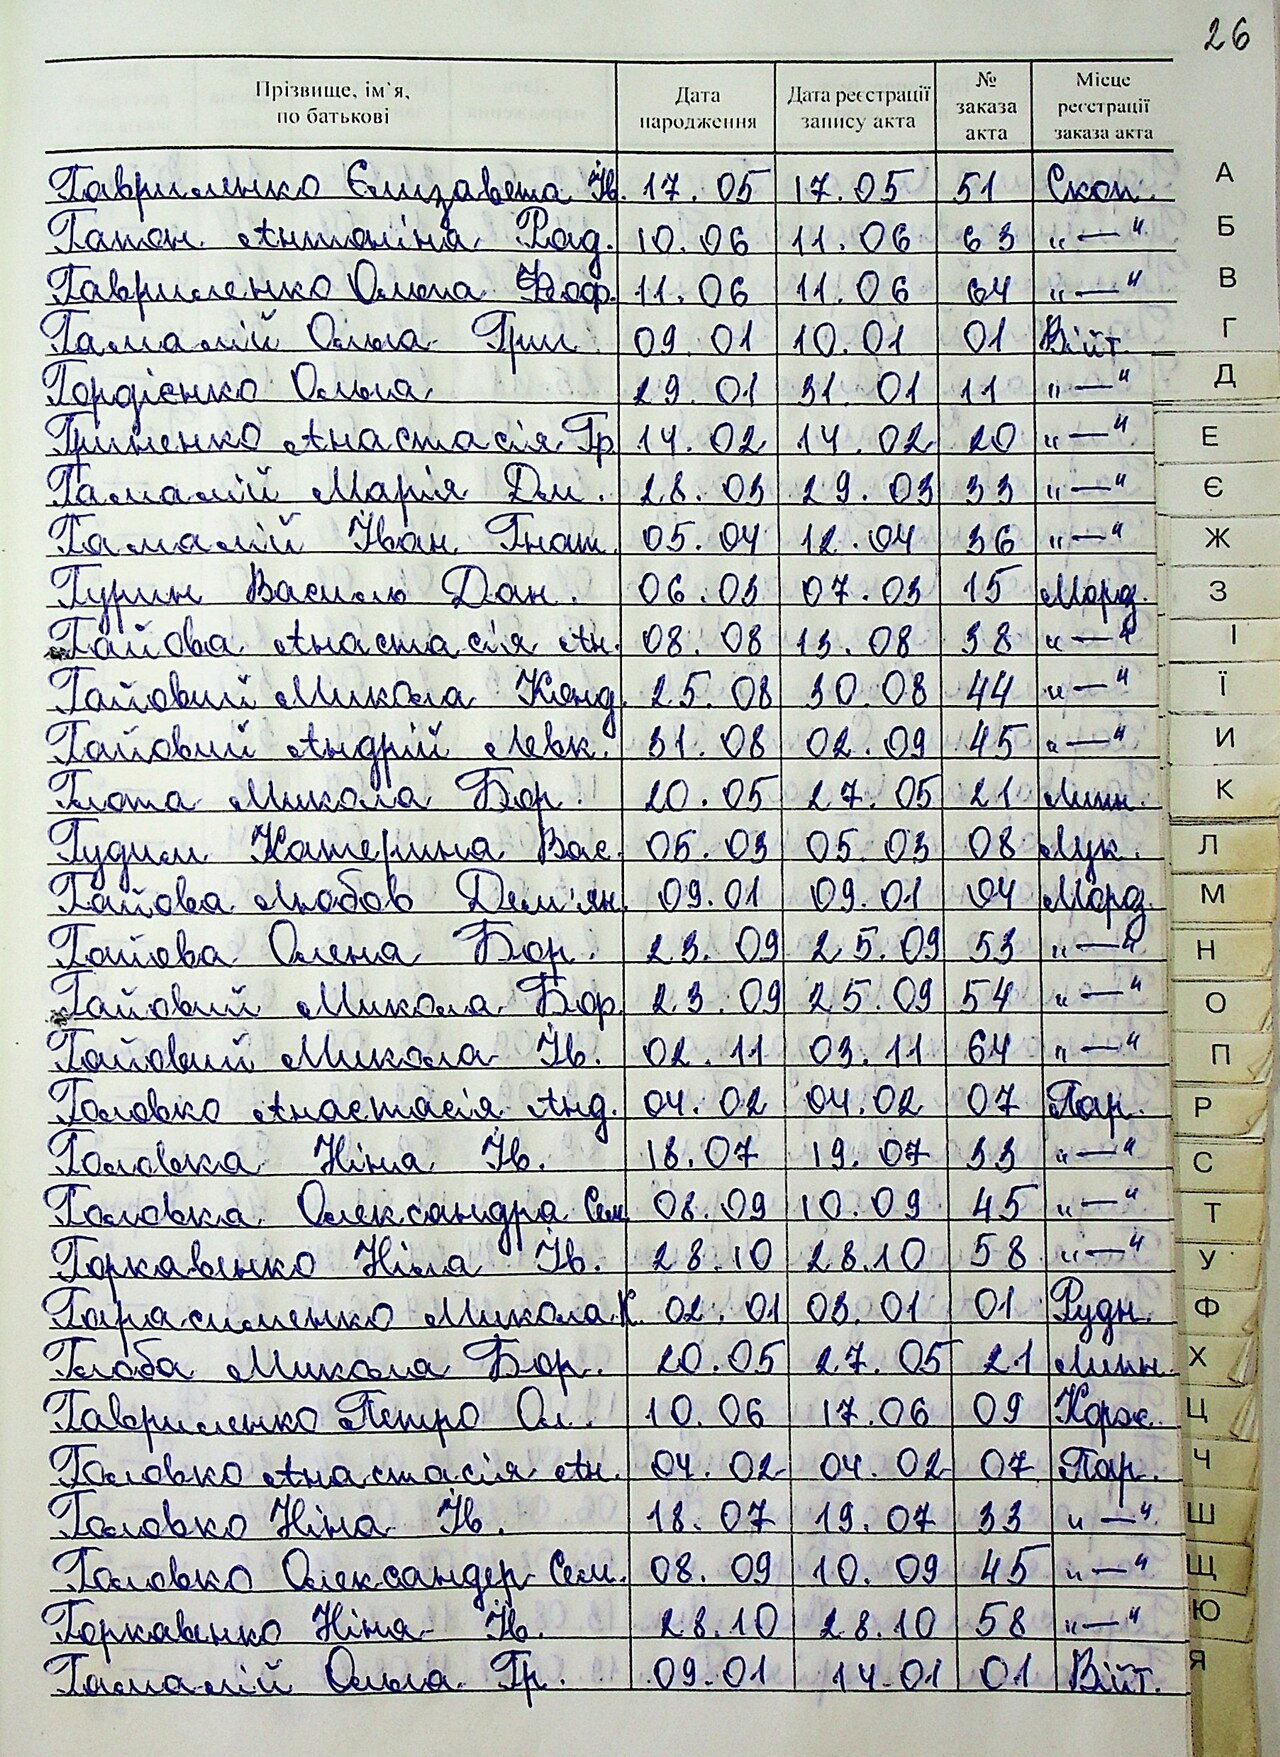 26
Прізвище, ім'я, по батькові Дата народження Дата реєстрації запису акта № заказа акта Місце реєстрації заказа акта
Гавриленко Єлизавета Ів. 17.05 17.05 51 Скоп.
Гапон Антоніна Род. 10.06 11.06 63 „—"
Гавриленко Ольга Феоф. 11.06 11.06 64 „—"
Гамалій Ольга Гри. 09.01 10.01 01 Війт.
Гордієнко Ольга 29.01 31.01 11 „—"
Гриненко Анастасія Гр. 14.02 14.02 20 „—"
Гамалій Марія Дм. 28.03 29.03 33 „—"
Гамалій Іван Гнат. 05.04 12.04 36 „—"
Гурин Василь Дан. 06.03 07.03 15 Мороз.
Гайова Анастасія Ан. 08.08 13.08 38 „—"
Гайовий Микола Конд. 25.08 30.08 44 „—"
Гайовий Андрій Левк. 31.08 02.09 45 „—"
Глота Микола Бор. 20.05 27.05 21 Липн.
Гудим Катерина Вас. 05.03 05.03 08 Лук.
Гайова Любов Дем'ян. 09.01 09.01 04 Мороз.
Гайова Олена Бор. 23.09 25.09 53 „—"
Гайовий Микола Бор. 23.09 25.09 54 „—"
Гайовий Микола Ів. 02.11 03.11 64 „—"
Головко Анастасія Анд. 04.02 04.02 07 Пар.
Головка Ніна Ів. 18.07 19.07 33 „—"
Головка Олександра Сем. 08.09 10.09 45 „—"
Горкавенко Ніла Ів. 28.10 28.10 58 „—"
Гарасименко Микола К. 02.01 03.01 01 Рудн.
Глоба Микола Бор. 20.05 27.05 21 Липн.
Гавриленко Петро Ол. 10.06 17.06 09 Корж.
Головко Анастасія Ан. 04.02 04.02 07 Пар.
Головко Ніна Ів. 18.07 19.07 33 „—"
Головко Олександер Сем. 08.09 10.09 45 „—"
Горкавенко Ніна Ів. 28.10 28.10 58 „—"
Гамалій Ольга Гр. 09.01 14.01 01 Війт.
А
Б
В
Г
Д
Е
Є
Ж
З
І
Ї
И
К
Л
М
Н
О
П
Р
С
Т
У
Ф
Х
Ц
Ч
Ш
Щ
Ю
Я